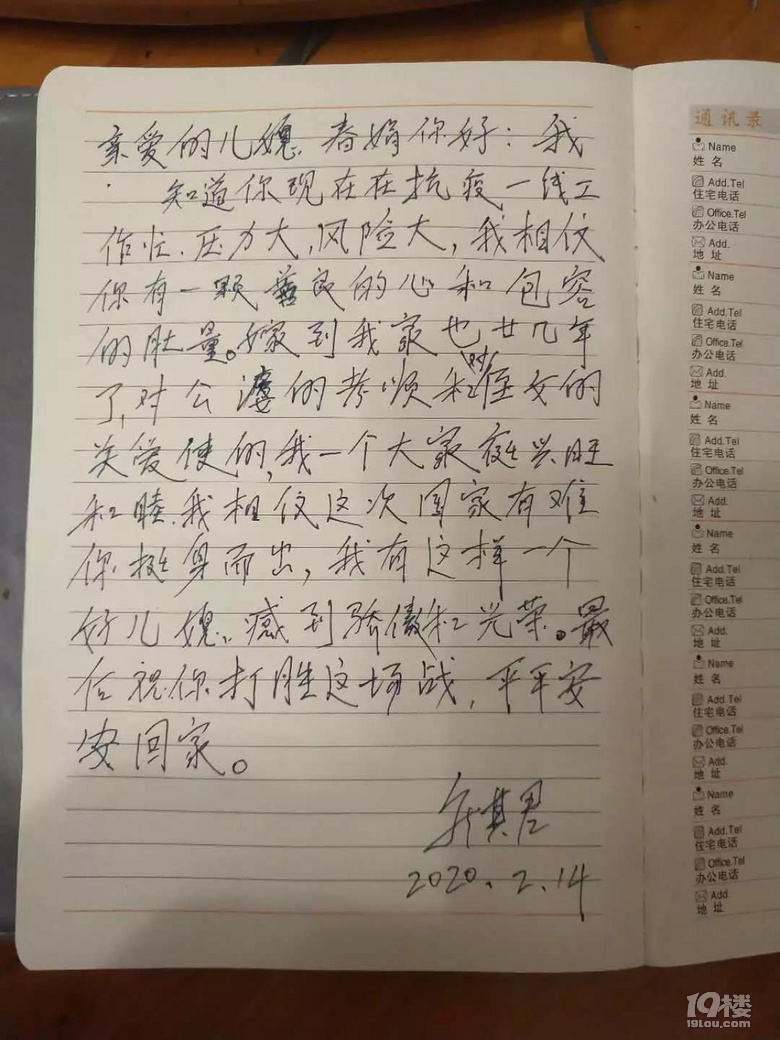 亲爱的儿媳.春娟你好：我
知道你现在在抗疫一线工
作忙.压力大,风险大,我相仪
你有一颗善良的心和包容
的肚量。嫁到我家也廿几年
了,对公婆的孝顺和对侄女的
关爱使的,我一个大家庭兴旺
和睦.我相仪这次国家有难
你挺身而出,我有这样一个
好儿媳.感到骄傲和光荣。最
后祝你打胜这场战,平平安
安回家。
2020.2.14
通讯录
Name
姓名
Add.Tel
住宅电话
Office.Tel
办公电话
Add.
地址
Name
姓名
Add.Tel
住宅电话
Office.Tel
办公电话
Add.
地址
Name
姓名
Add.Tel
住宅电话
Office.Tel
办公电话
Add.
地址
Name
姓名
Add.Tel
住宅电话
Office.Tel
办公电话
Add.
地址
Name
姓名
Add.Tel
住宅电话
Office.Tel
办公电话
Add.
地址
Name
姓名
Add.Tel
住宅电话
Office.Tel
办公电话
Add.
地址
19楼
19lou.com